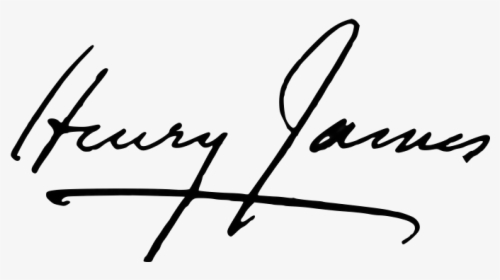 Henry James